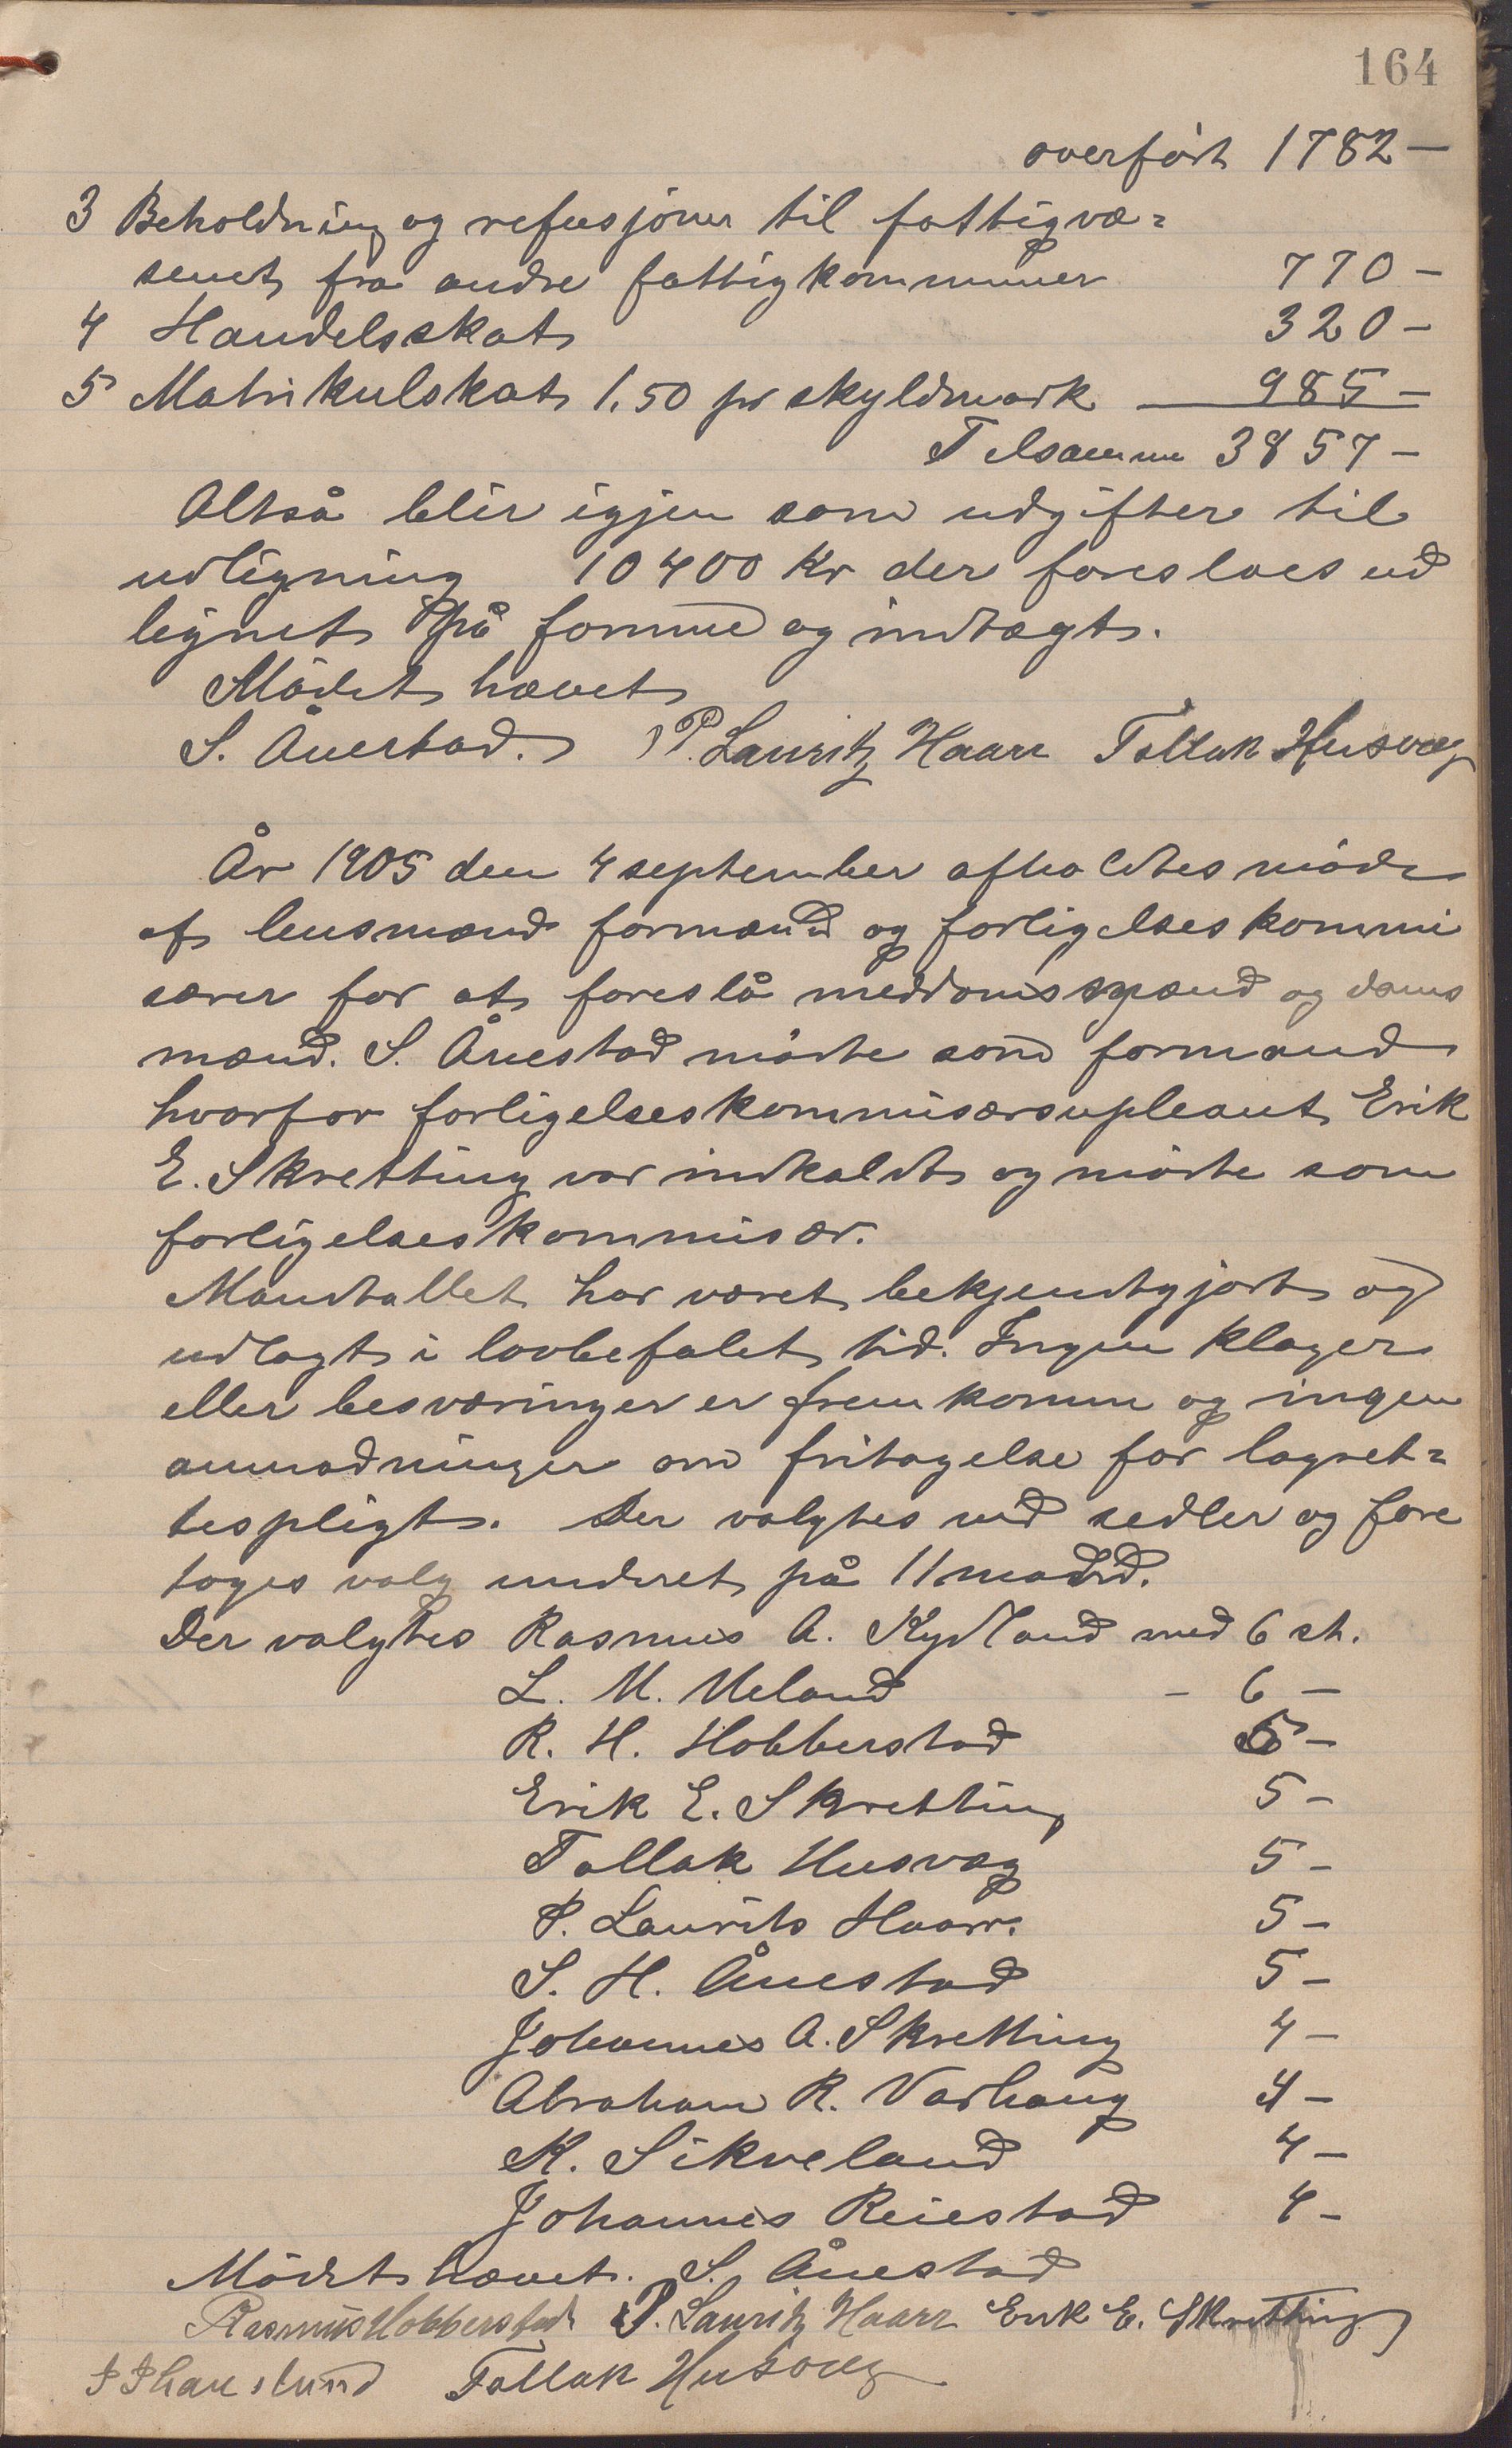 164
overført 1782 —
3 Beholdning og refusjoner til fattigvæ-
senet fra andre fattigkommuner 770 –
4 Handelsskat 320 –
5 Matrikulskat 1,50 pr skyldmark 985 –
Tilsamme 3857 –
Altså blir igjen som udgifter til
udligning 10400 Kr der foreslaes ud
lignet på formue og indtægt.
Mødet hævet
S. Ånestad. P. Lauritz Haarr Tollak Husvæg
År 1905 den 4 september afholdtes møde
af lensmand formænd og forligelseskommi
særer for at foreslå meddomsmænd og doms
mænd. S. Ånestad mødte som formand
hvorfor forligelseskommisærsupleant Erik
E. Skretting var indkaldt og mødte som
forligelseskommisær.
Mandtallet har været bekjendtgjort og
udlagt i lovbefalet tid. Ingen klager
eller besværinger er fremkomne og ingen
anmodninger om fritagelse for lagret-
tespligt. Der valgtes ved sedler og fore
toges valg underet på 11 mænd.
Der valgtes Rasmus A. Kydland med 6 st.
L. M. Meland – 6 –
R. H. Hobberstad 5 –
Erik E. Skretting 5 –
Tollak Husvæg 5 –
P. Laurits Haarr. 5 –
S. H. Ånestad 5 –
Johannes A. Skretting 4 –
Abraham R. Varhaug 4 –
K. Sikveland 4 –
Johannes Reiestad 4 –
Mødet hævet. S. Ånestad
Rasmus Hobberstad P. Lauritz Haarr Erik E. Skretting
Tollak Husvæg